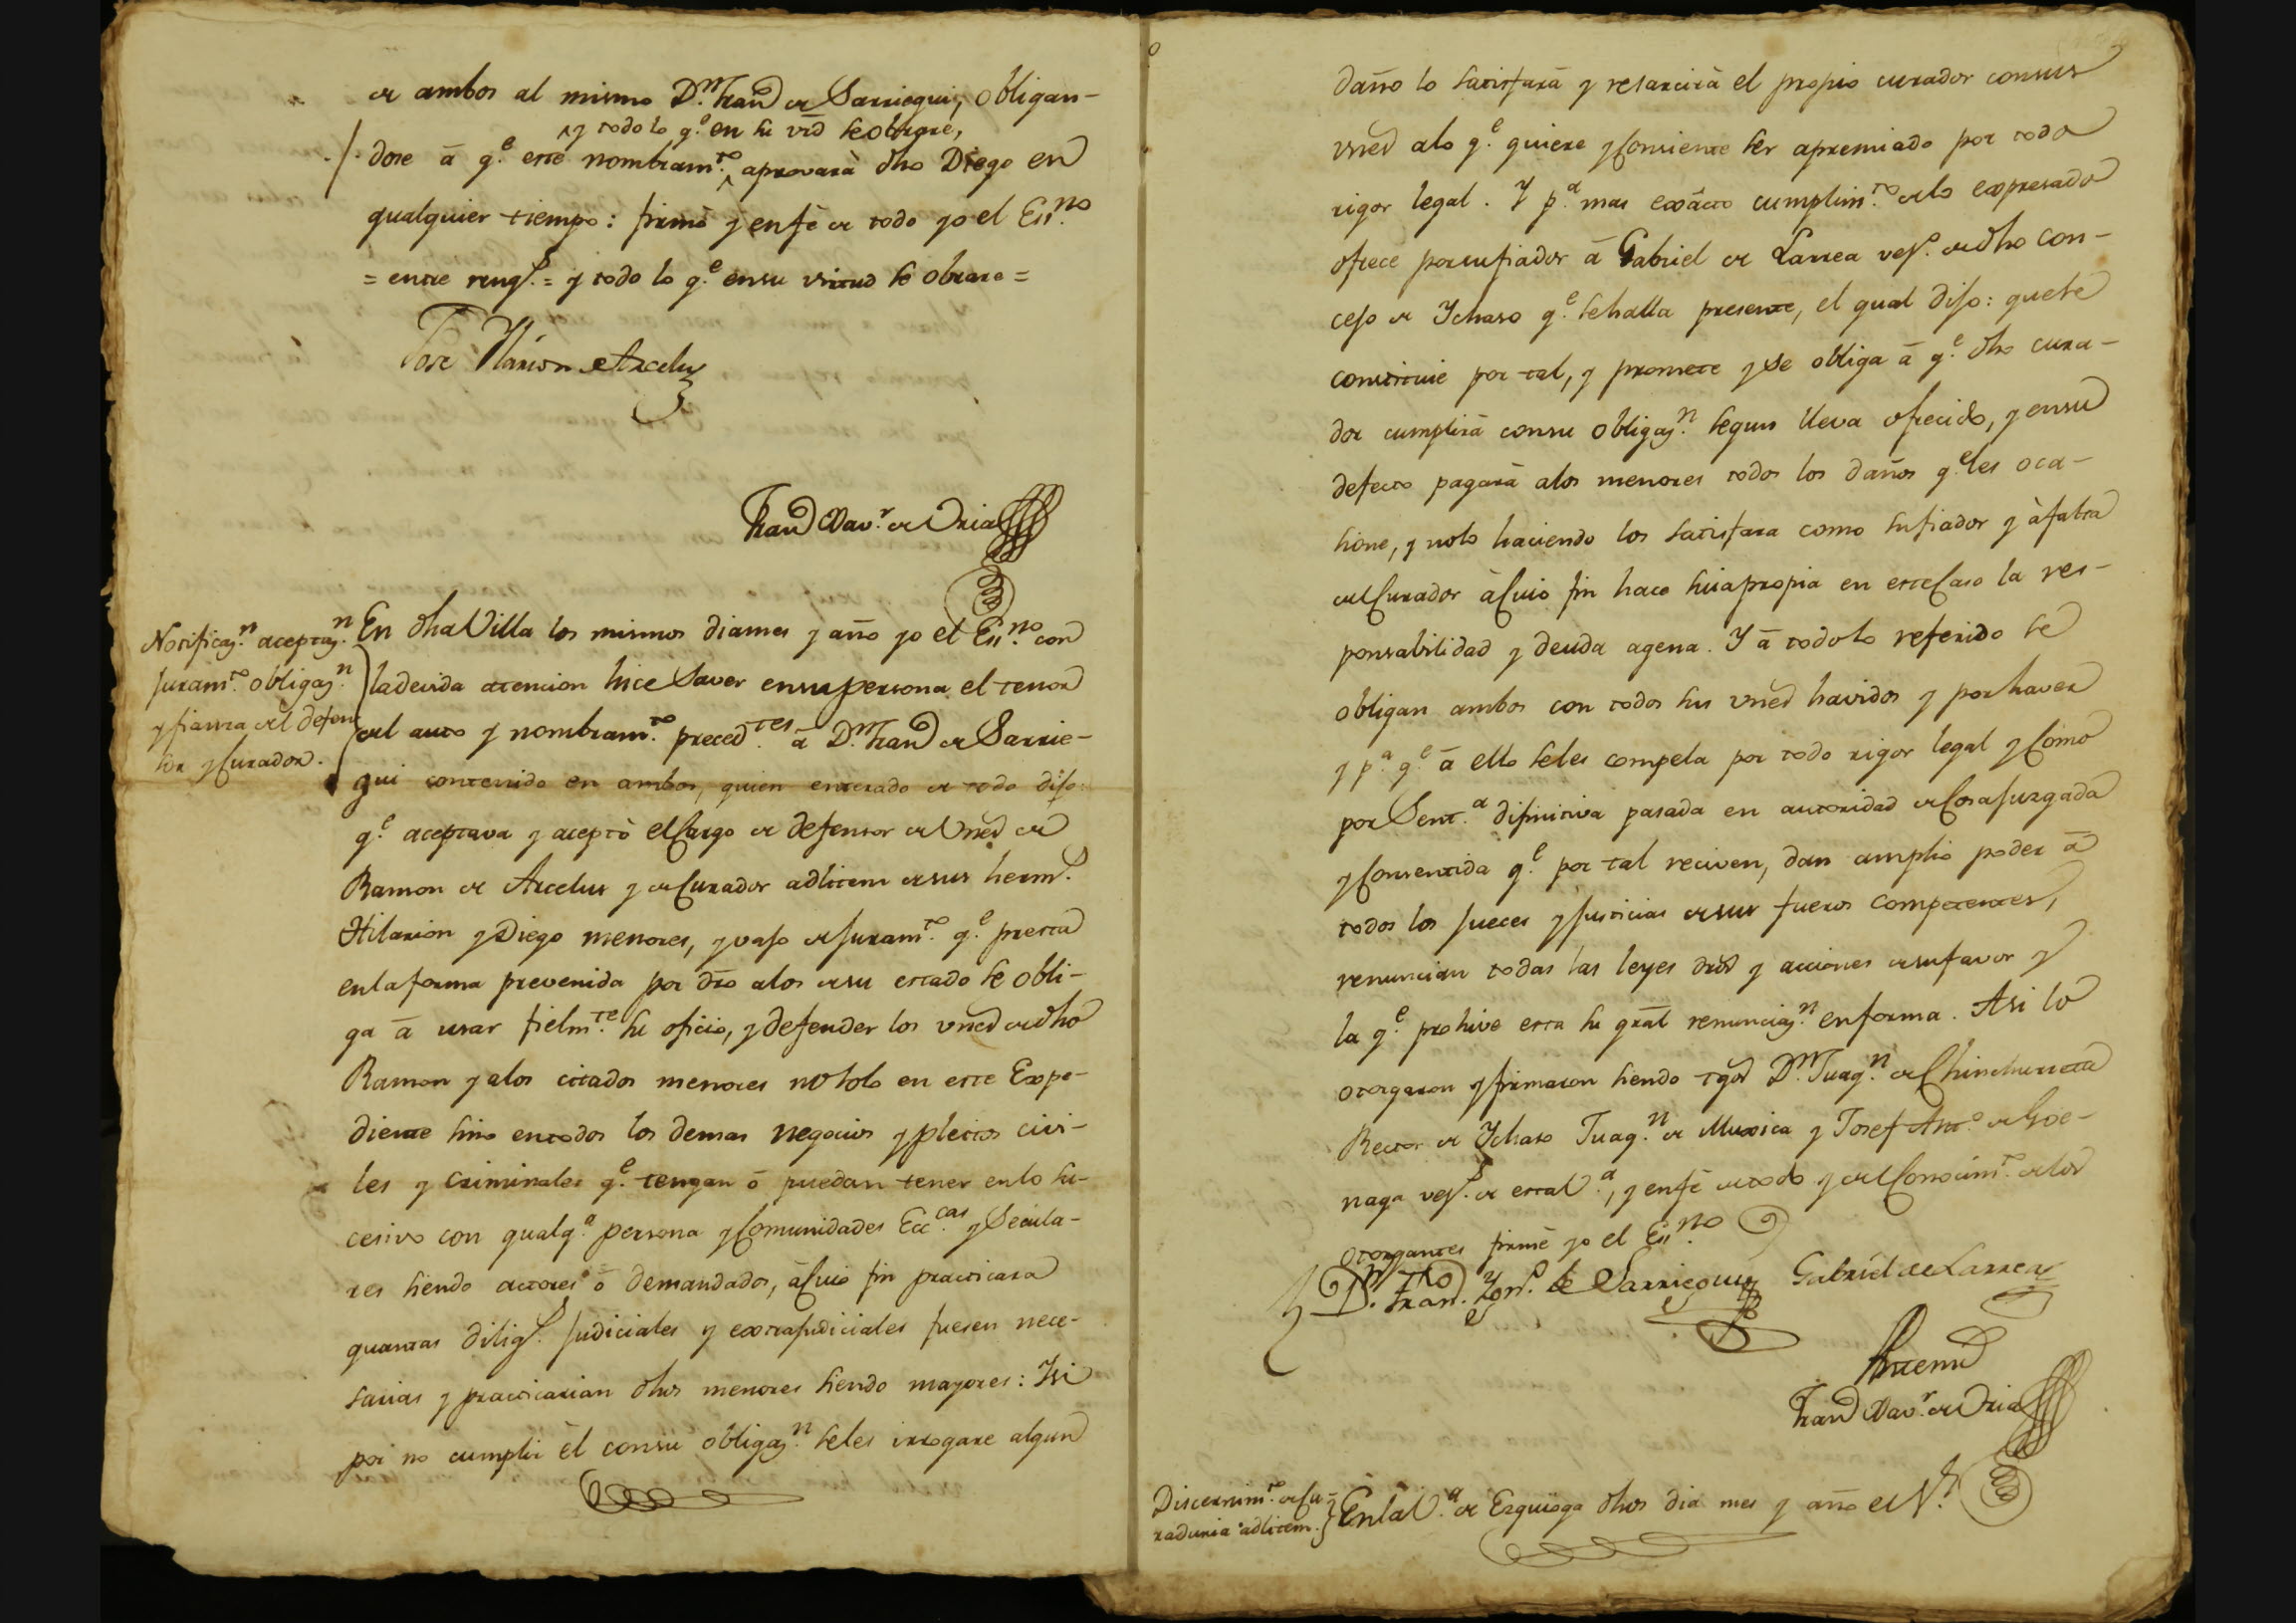 de ambos al mismo D.ⁿ Fran.co de Sarriegui, obligan-
y todo lo q.ᵉ en su vrd se obrare,
dose â q.ᵉ este nombram.ᵗᵒ aprovarà dho Diego en
qualquier tiempo: firmò y enfè de todo yo el Ess.ⁿᵒ
= entre reng.ˢ = y todo lo q.ᵉ ensu virtud se obrare =
Jose Ylarion Arcelus
Fran.co Xav.ʳ de Oria
Notificaz.ⁿ aceptaz.ⁿ
juram.ᵗᵒ obligaz.ⁿ
y fianza del defen
sor y Curador.
En dha Villa los mismos dia mes y año yo el Ess.ⁿᵒ con
la devida atencion hice Saver ensu persona el tenor
del auto y nombram.ᵗᵒ preced.ᵗᵉˢ â D.ⁿ Fran.co de Sarrie-
gui contenido en ambos, quien enterado de todo dijo:
q.ᵉ aceptava y aceptò el Cargo de defensor de Vnes de
Ramon de Arcelus y de Curador adlitem desus herm.ˢ
Hilarion y Diego menores, y vajo de juram.ᵗᵒ q.ᵉ presta
enla forma prevenida por dro alos desu estado se obli-
ga â usar fielm.ᵗᵉ su oficio, y defender los vnes de dho
Ramon y alos citados menores no solo en este Expe-
diente sino entodos los demas negocios y pleitos civi-
les y criminales q.ᵉ tengan ô puedan tener enlo su-
cesivo con qualq.ᵃ persona y Comunidades Ecc.ᶜᵃˢ y Secula-
res siendo actores ô demandados, à Cuio fin practicara
quantas dilig.ˢ judiciales y extrajudiciales fuesen nece-
sarias y practicarian dhos menores siendo mayores: Y si
por no cumplir èl consu obligaz.ⁿ seles irrogare algun
daño lo satisfará y resarcirà el propio curador consus
vnes alo q.ᵉ quiere y Consiente ser apremiado por todo
rigor legal. Y p.ᵃ mas exâcto cumplim.ᵗᵒ delo expresado
ofrece porsufiador â Gabriel de Larrea vez.º de dho Con-
cejo de Ychaso q.ᵉ sehalla presente, el qual dijo: quese
constituie por tal, y promete y se obliga â q.ᵉ dho cura-
dor cumplirá consu obligaz.ⁿ segun lleva ofrecido, y ensu
defecto pagará alos menores todos los daños q.ᵉ les oca-
sione, y nolo haciendo los satisfara como sufiador y àfalta
del Curador à Cuio fin hace suia propia en este Caso la res-
ponsabilidad y deuda agena. Y â todo lo referido se
obligan ambos con todos sus vnes havidos y por haver
y p.ᵃ q.ᵉ â ello seles compela por todo rigor legal y Como
por Sent.ᵃ difinitiva pasada en autoridad de Cosa juzgada
y Consentida q.ᵉ por tal reciven, dan amplio poder â
todos los jueces y justicias desus fueros competentes,
renuncian todas las leyes dros y acciones de su favor y
la q.ᵉ prohive esta su gral renunciaz.ⁿ enforma. Asi lo
otorgaron y firmaron siendo tgos D.ⁿ Juaq.ⁿ de Chinchurreta
Rector de Ychaso Juaq.ⁿ de Muxica y Josef Ant.º de Goe-
naga vez.ˢ de esta V.ᵃ, y enfè de todo y del Conocim.ᵗᵒ delos
otorgantes firmè yo el Ess.ⁿᵒ
D.ⁿ Fran.co Ygn.º de Sarriegui Gabriel de Larrea
Antemi
Fran.co Xav.ʳ de Oria
Discernim.ᵗᵒ de Cu-
raduria adlitem.
En la V.ᵃ de Ezquioga dhos dia mes y año el S.ʳ